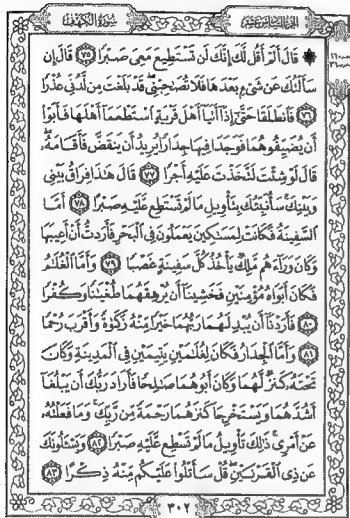 سورة الكهف
الجزء السادس عشر
۞ قَالَ أَلَمْ أَقُل لَّكَ إِنَّكَ لَن تَسْتَطِيعَ مَعِيَ صَبْرًا ۝٧٥ قَالَ إِن
سَأَلْتُكَ عَن شَيْءٍ بَعْدَهَا فَلَا تُصَٰحِبْنِي قَدْ بَلَغْتَ مِن لَّدُنِّي عُذْرًا
۝٧٦ فَٱنطَلَقَا حَتَّىٰٓ إِذَآ أَتَيَآ أَهْلَ قَرْيَةٍ ٱسْتَطْعَمَآ أَهْلَهَا فَأَبَوْا۟
أَن يُضَيِّفُوهُمَا فَوَجَدَا فِيهَا جِدَارًا يُرِيدُ أَن يَنقَضَّ فَأَقَامَهُۥ
قَالَ لَوْ شِئْتَ لَتَّخَذْتَ عَلَيْهِ أَجْرًا ۝٧٧ قَالَ هَٰذَا فِرَاقُ بَيْنِي
وَبَيْنِكَ سَأُنَبِّئُكَ بِتَأْوِيلِ مَا لَمْ تَسْتَطِع عَّلَيْهِ صَبْرًا ۝٧٨ أَمَّا
ٱلسَّفِينَةُ فَكَانَتْ لِمَسَٰكِينَ يَعْمَلُونَ فِي ٱلْبَحْرِ فَأَرَدتُّ أَنْ أَعِيبَهَا
وَكَانَ وَرَآءَهُم مَّلِكٌ يَأْخُذُ كُلَّ سَفِينَةٍ غَصْبًا ۝٧٩ وَأَمَّا ٱلْغُلَٰمُ
فَكَانَ أَبَوَاهُ مُؤْمِنَيْنِ فَخَشِينَآ أَن يُرْهِقَهُمَا طُغْيَٰنًا وَكُفْرًا
۝٨٠ فَأَرَدْنَآ أَن يُبْدِلَهُمَا رَبُّهُمَا خَيْرًا مِّنْهُ زَكَوٰةً وَأَقْرَبَ رُحْمًا
۝٨١ وَأَمَّا ٱلْجِدَارُ فَكَانَ لِغُلَٰمَيْنِ يَتِيمَيْنِ فِي ٱلْمَدِينَةِ وَكَانَ
تَحْتَهُۥ كَنزٌ لَّهُمَا وَكَانَ أَبُوهُمَا صَٰلِحًا فَأَرَادَ رَبُّكَ أَن يَبْلُغَآ
أَشُدَّهُمَا وَيَسْتَخْرِجَا كَنزَهُمَا رَحْمَةً مِّن رَّبِّكَ وَمَا فَعَلْتُهُۥ
عَنْ أَمْرِي ذَٰلِكَ تَأْوِيلُ مَا لَمْ تَسْطِع عَّلَيْهِ صَبْرًا ۝٨٢ وَيَسْـَٔلُونَكَ
عَن ذِي ٱلْقَرْنَيْنِ قُلْ سَأَتْلُوا۟ عَلَيْكُم مِّنْهُ ذِكْرًا ۝٨٣
٣٠٢